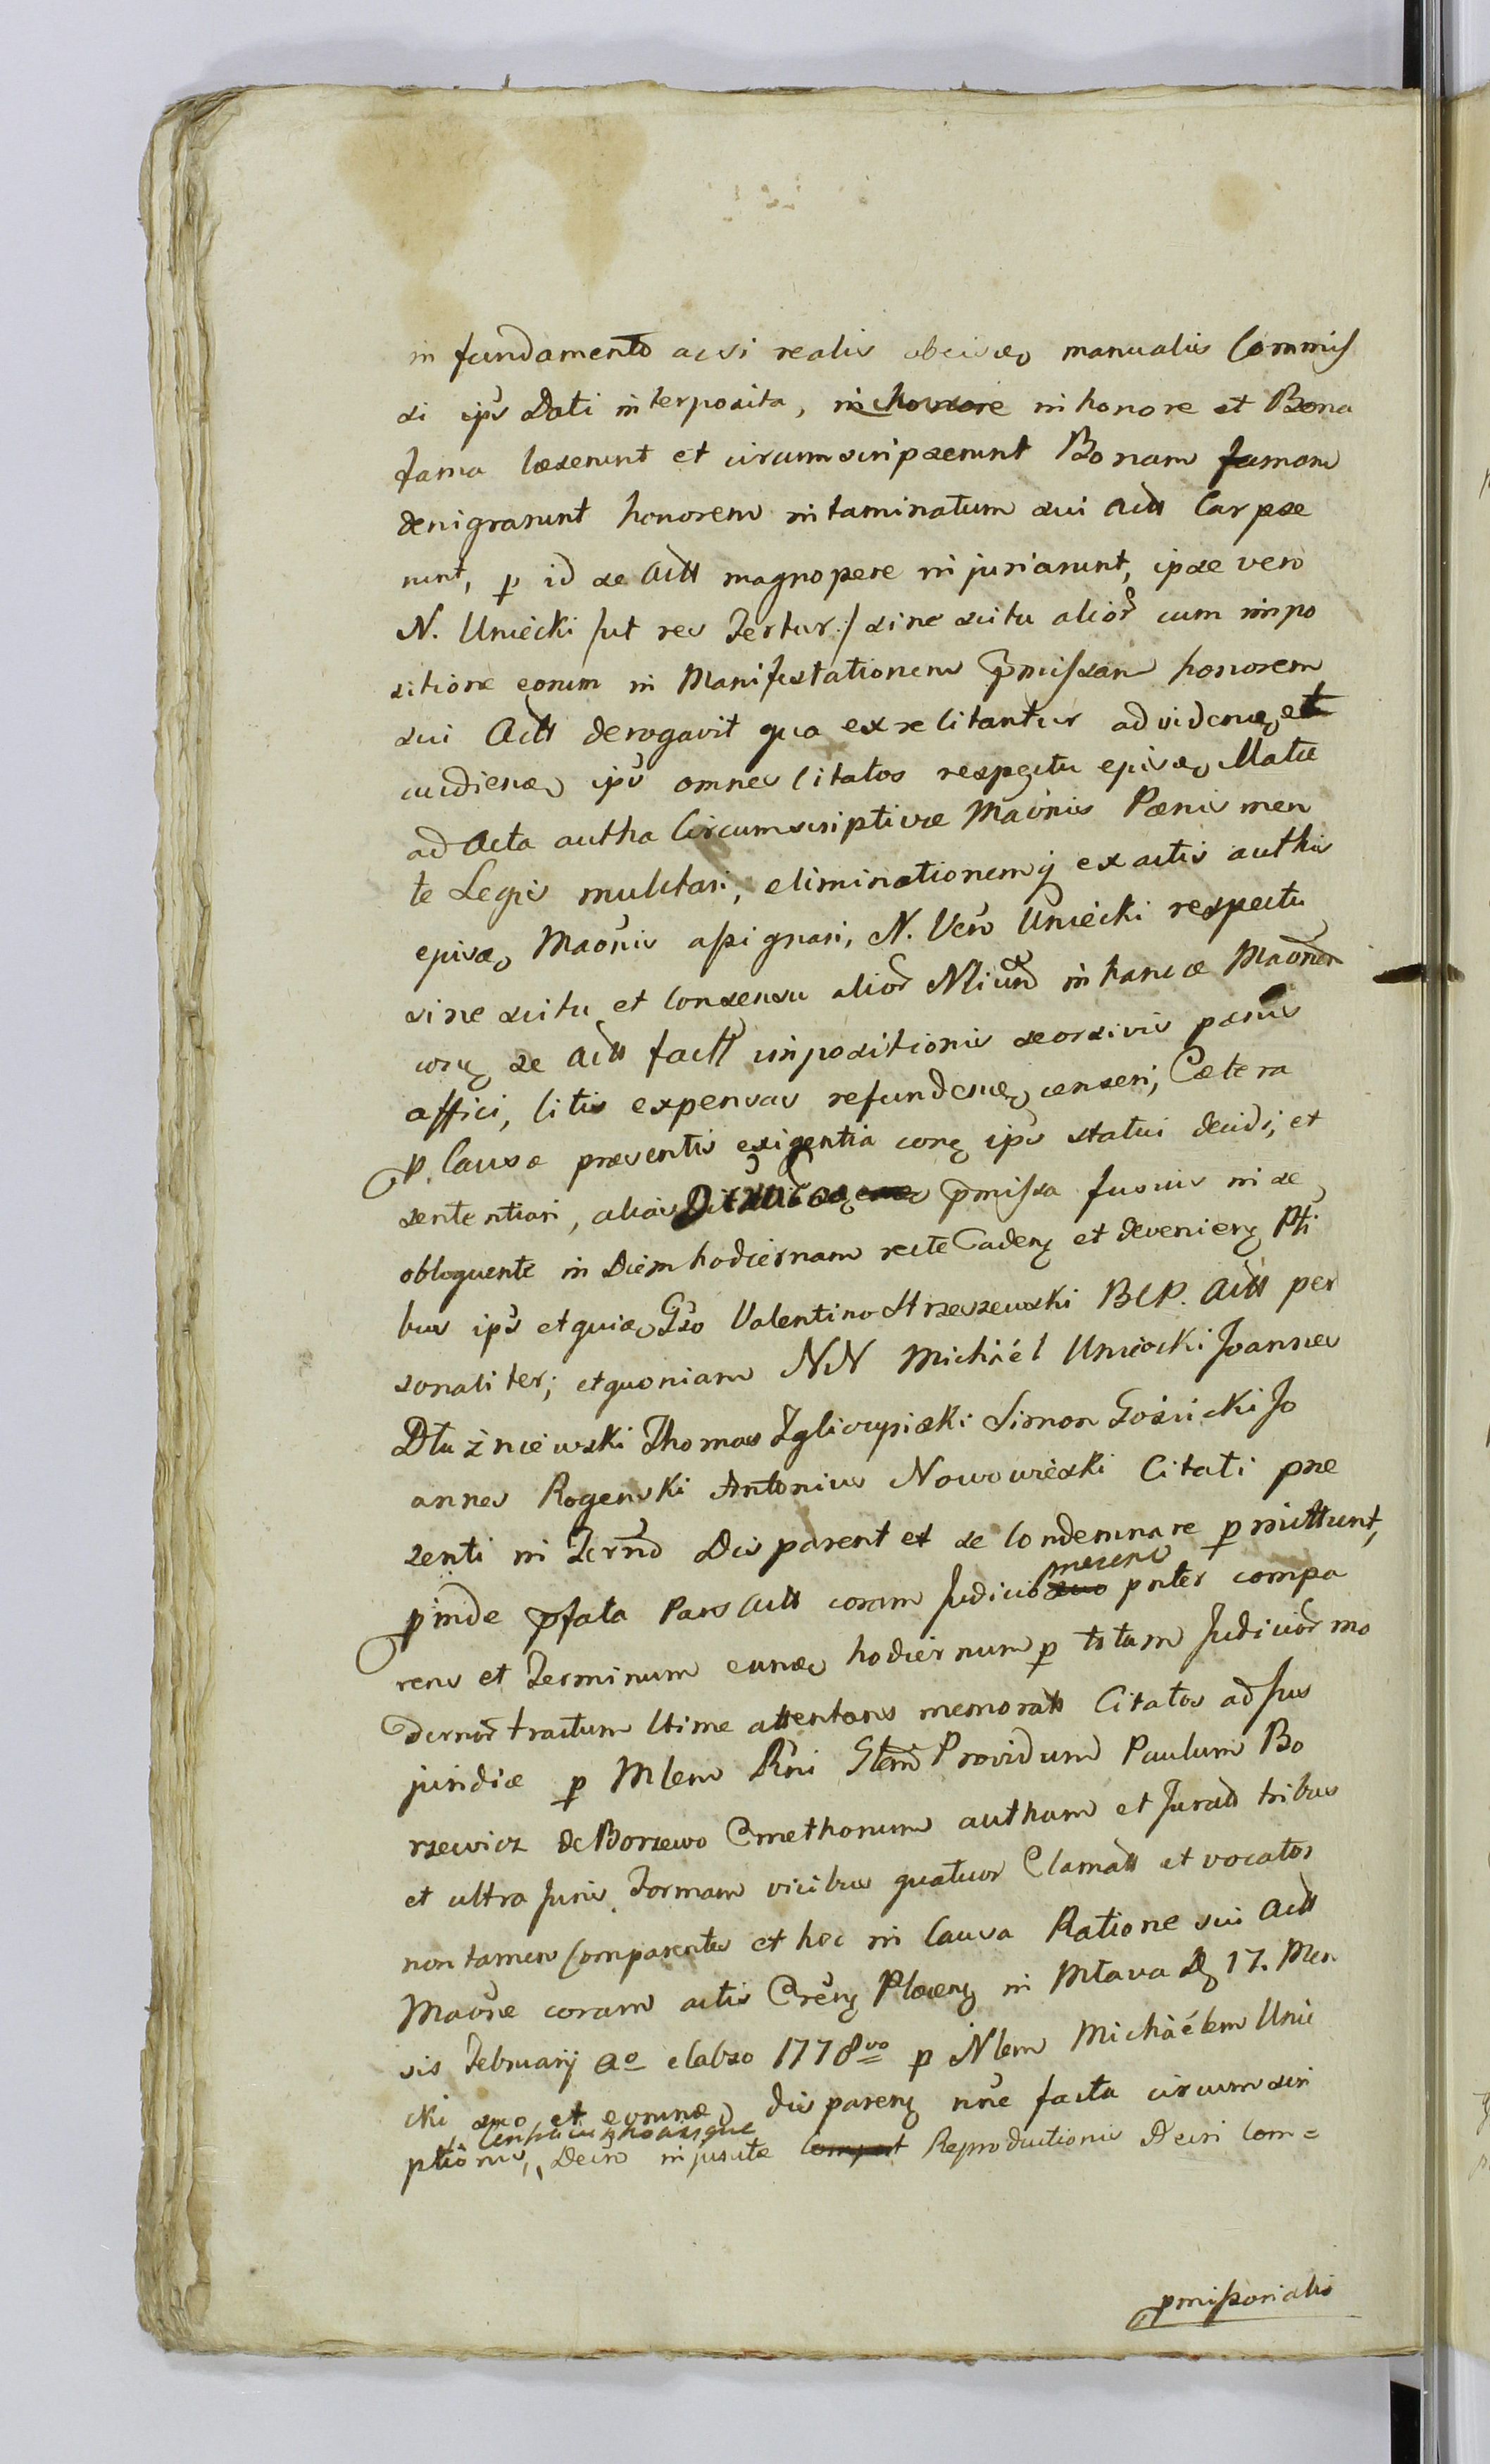 in fundamento ac si realis manualis Commis
si ips Dati interposita, in honore in honore et Bona
fama læserunt et circumscripserunt Bonam famam
denigrarunt honorem intaminatum sui Actt Carpse
runt, p id se Actt magnopere injuriarunt, ipse vero
N. Uniécki /ut rev fertur:/ sine scitu alior cum impo
sitione eorum in Manifestationem pmissam honorem
sui Actt derogavit qua ex re Citantur ad et
ips omnes Citatos respectu Matæ
ad Acta autha Circumscriptivæ Maonis Pænis men
te Legis mulctari, eliminationemq ex actis authis
Maonis assignari, N. Vero Uniécki respectu
sine scitu et Consensu alior in
se Actt factt impositionis seorsivis pænis
affici, Litis expensas censeri, Cætera
p. Causæ præsentis exigentia ips statui decidi, et
sententiari, alias pmissa fusius in se
obloquente in Diem hodiernam recte Caden et devenien Pti
bus ips Gso Valentino Strzeszewski BCP. Actt per
sonaliter; et quoniam NN Michäél Uniecki Joannes
Dłużniéwski Thomas Zgliczyński Simon Gósicki Jo
annes Rogenski Antonius Nowowiéski Citati præ
senti in Termo Dis parent et se Condemnare pmittunt,
pinde pfata Pars Actt coram Judicio suo pnter compa
rens et Terminum hodiernum p totam Judicior mo
dernor tractum Ltime attentans memoratt Citatos ad Jus
juridice p Mlem Rni Glem Providum Paulum Bo
rzewicz de Borzewo Cmethonum authum et Juratt tribus
et ultra Juris formam vicibus quatuor Clamatt et vocatos
non tamen Comparentes et hoc in Causa Ratione sui Actt
Maone coram actis Plocen in Mława D 17. Men
sis Februarij Ao elabso 1778vo p Nlem Michäélem Unie
cki suo et disparen nne facta circumscri
ptionis, Decr injuste Compart Reproductionis Decri Com=
pmissorialis